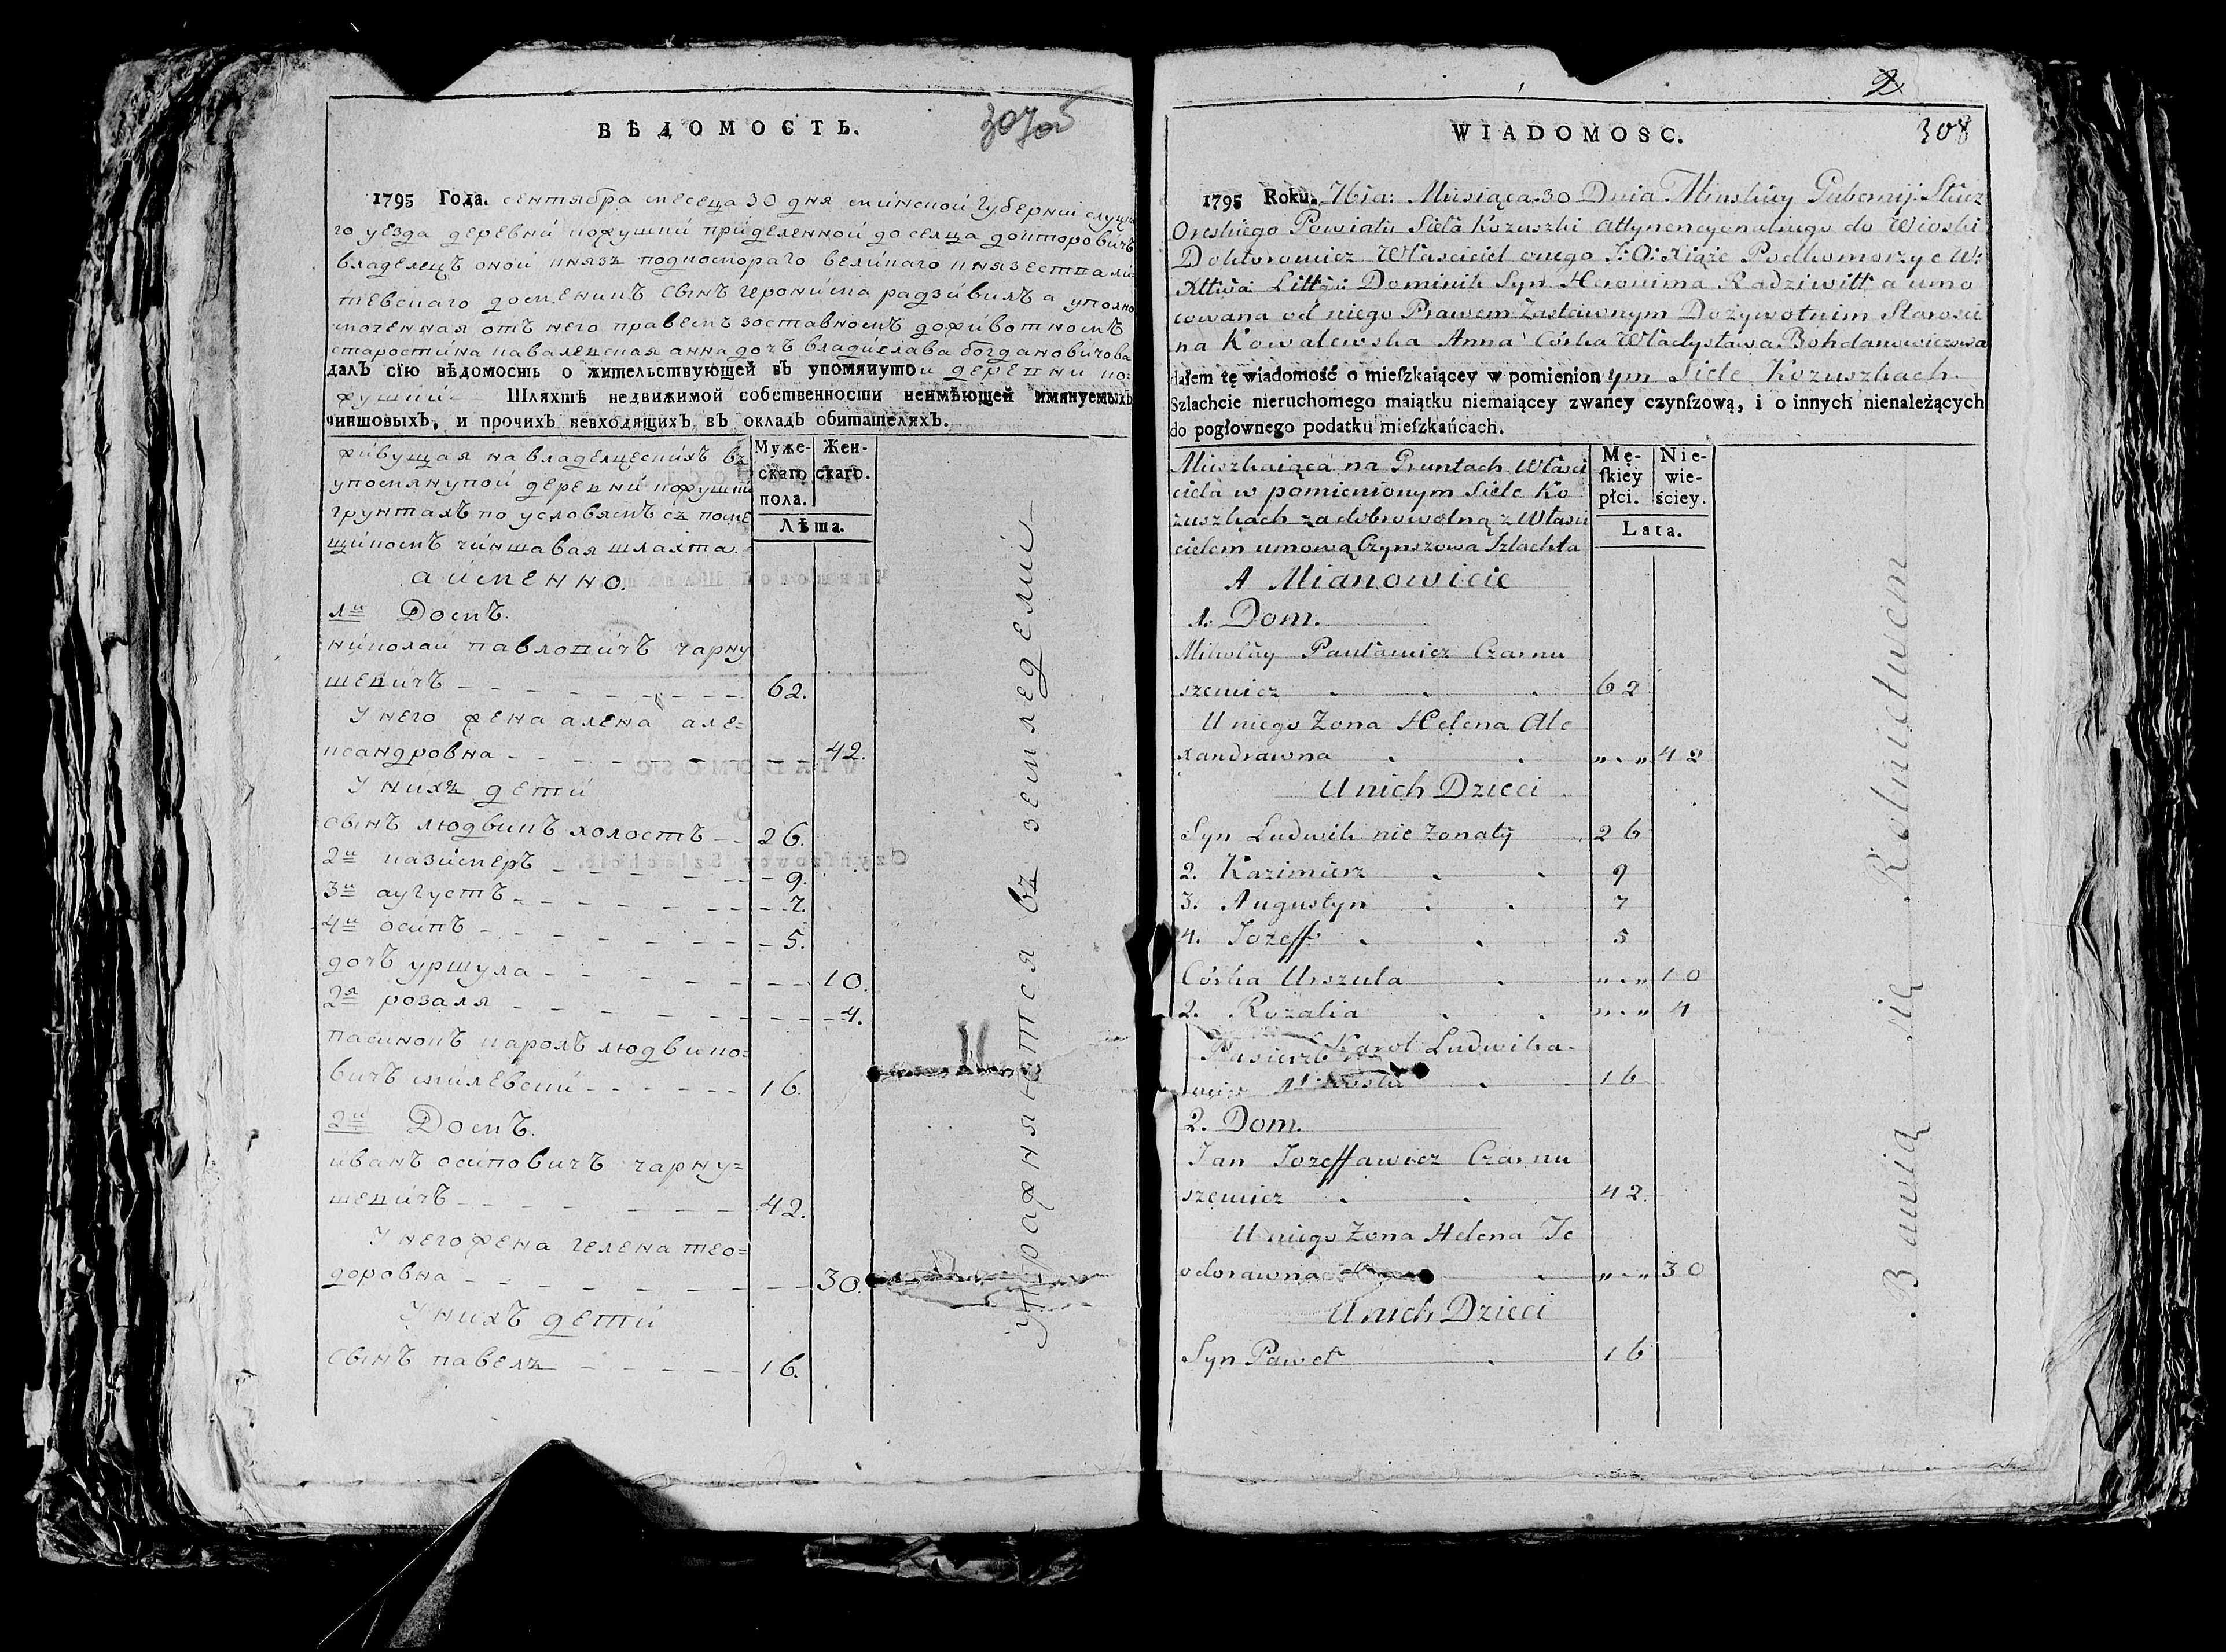 ВѢДОМОСТЬ.
307об
1795 Года. сентября месеца 30 дня минской губерніи слуц
го уезда деревни кожушки приделенной до селца докторовичъ
владелецъ оной князь подкомораго великаго князества ли
товскаго доменикъ сынъ геронима радзивилъ а уполно
моченная отъ него правемъ заставномъ доживотномъ
старостина кавалевская анна дочъ владислава богдановичова
далъ сїю вѣдомость о жительствующей въ упомянутой деревни ко
жушки Шляхтѣ недвижимой собственности неимѣющей имянуемыхъ
чиншовыхъ, и прочихъ невходящихъ въ окладъ обитателяхъ.
Муже- Жен-
скаго скаго.
пола.
Лѣта.
живущая на владелцескихъ въ
упомянутой деревни кожушки
грунтахъ по условямъ съ поме
щикомъ чиншавая шляхта
а именно.
1й Домъ.
николай павловичъ чарну
шевичъ 62.
У него жена алена але=
ксандровна 42.
У нихъ дети
сынъ людвикъ холостъ 26.
2й казимеръ 9.
3й аугустъ 7.
4й осипъ 5.
дочъ уршула 10.
2я розаля 4.
пасинокъ кароль людвико=
вичъ милевски 16.
2й Домъ.
иванъ осиповичъ чарну=
шевичъ 42.
У него жена гелена тео=
доровна 30.
У нихъ дети
сынъ павелъ 16.
упражняются въ земледелии
2
WIADOMOSC.
308
1795 Roku. 7bra: Miesiąca 30 Dnia Minskiey Gubernij Słucz
Oreskiego Powiatu Sieła Kozuszki attynencyonalnego do Wioski
Doktorowicz Własciciel onego J: O: Xiąże Podkomorzy c W:
Xttwa Littgo: Dominik Syn Heronima Radziwiłł a umo
cowana od niego Prawem Zastawnym Dożywotnim Starosci
na Kowalewska Anna Córka Władysława Bohdanowiczowa
dałem tę wiadomość o mieſzkaiącey w pomienionym Siele Kozuszkach
Szlachcie nieruchomego maiątku niemaiącey zwaney czynſzową, i o innych nienależących
do pogłownego podatku mieſzkańcach.
Mę- Nie-
ſkiey wie-
płci. ściey.
Lata.
Mieszkaiąca na Gruntach Własci
ciela w pomienionym Siele Ko
zuszkach za dobrowolną z Własci
cielem umową Czynszowa Szlachta
A Mianowicie
1. Dom.
Mikołay Pawławicz Czarnu
szewicz 62
U niego Żona Helena Ale
xandrawna 42
U nich Dzieci
Syn Ludwik nie żonaty 26
2. Kazimierz 9
3. Augustyn 7
4. Jozeff 5
Córka Urszula 10
2. Rozalia 4
Pasierzb Karol Ludwika-
wicz 16
2. Dom.
Jan Jozeffawicz Czarnu
szewicz 42.
U niego Żona Helena Te
odorawna 30
U nich Dzieci
Syn Paweł 16
Bawią się Rolnictwem